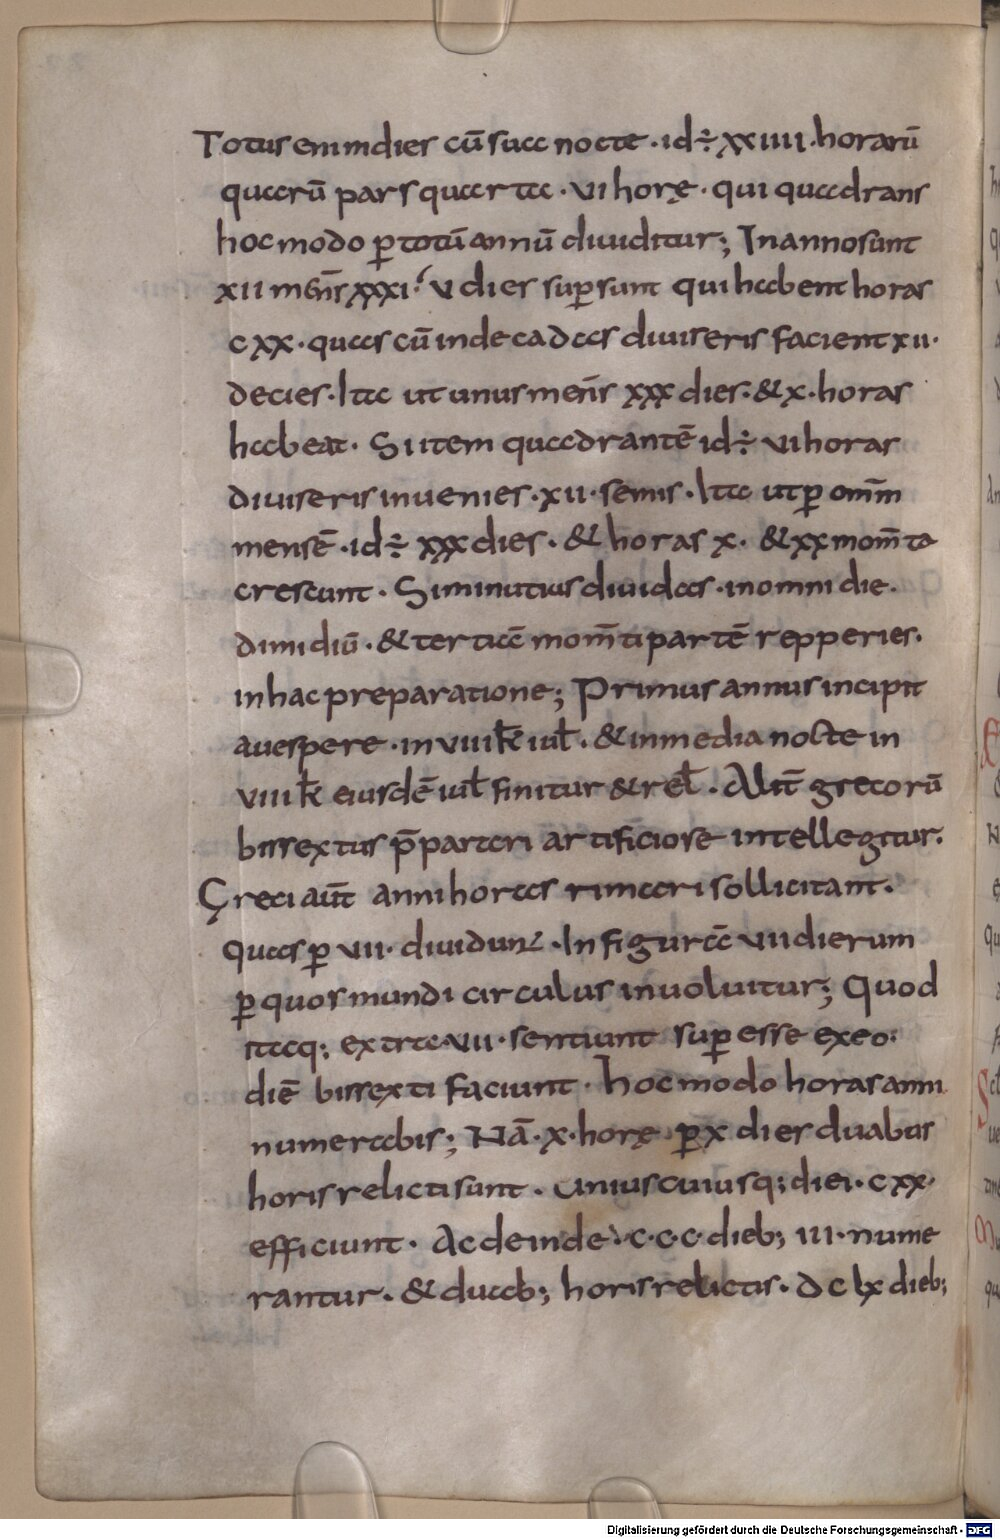 Totus enim dies cū sua nocte · id ÷ xxiiii · horarū
quarū pars quarta · vi horę · qui quadrans
hoc modo p̄ totū annū diuiditur; In anno sunt
xii mens̄ xxxi · v dies sup̄sunt qui habent horas
cxx · quas cū in decadas diuiseris facient xii ·
decies · Ita ut unus mens̄ xxx dies · & x · horas
habeat · Si item quadrantē id ÷ vi horas
diuiseris inuenies · xii · semis · Ita ut p̄ omn̄
mensē · id ÷ xxx dies · & horas x · & xx mom̄ta
crescunt · Si minutius diuidas · in omni die ·
dimidiū · & tertiā mom̄ti partē repperies ·
in hac preparatione; Primus annus incipit
a uespere · in viiii k̄ iul̄ · & in media nocte in
viii k̄ eiusdē iul̄ finitur & rel̄ · Alit̄ grecorū
bissextus p̄parari artificiose intellegitur ·
Greci aūt anni horas rimari sollicitant ·
quas p̄ vii · diuidunt · In figurā vii dierum
p̄ quos mundi circulus inuoluitur; Quod
itaq; extra vii · sentiunt sup̄esse ex eo ·
diē bissexti faciunt · hoc modo horas anni
numerabis; Nā · x · horę p̄ x dies duabus
horis relictis sunt · unius cuiusq; diei · cxx ·
efficiunt · Ac deinde · c · c · c · dieb; iii · nume
rantur · & duab; horis relictis · dclx dieb;
Digitalisierung gefördert durch die Deutsche Forschungsgemeinschaft - DFG